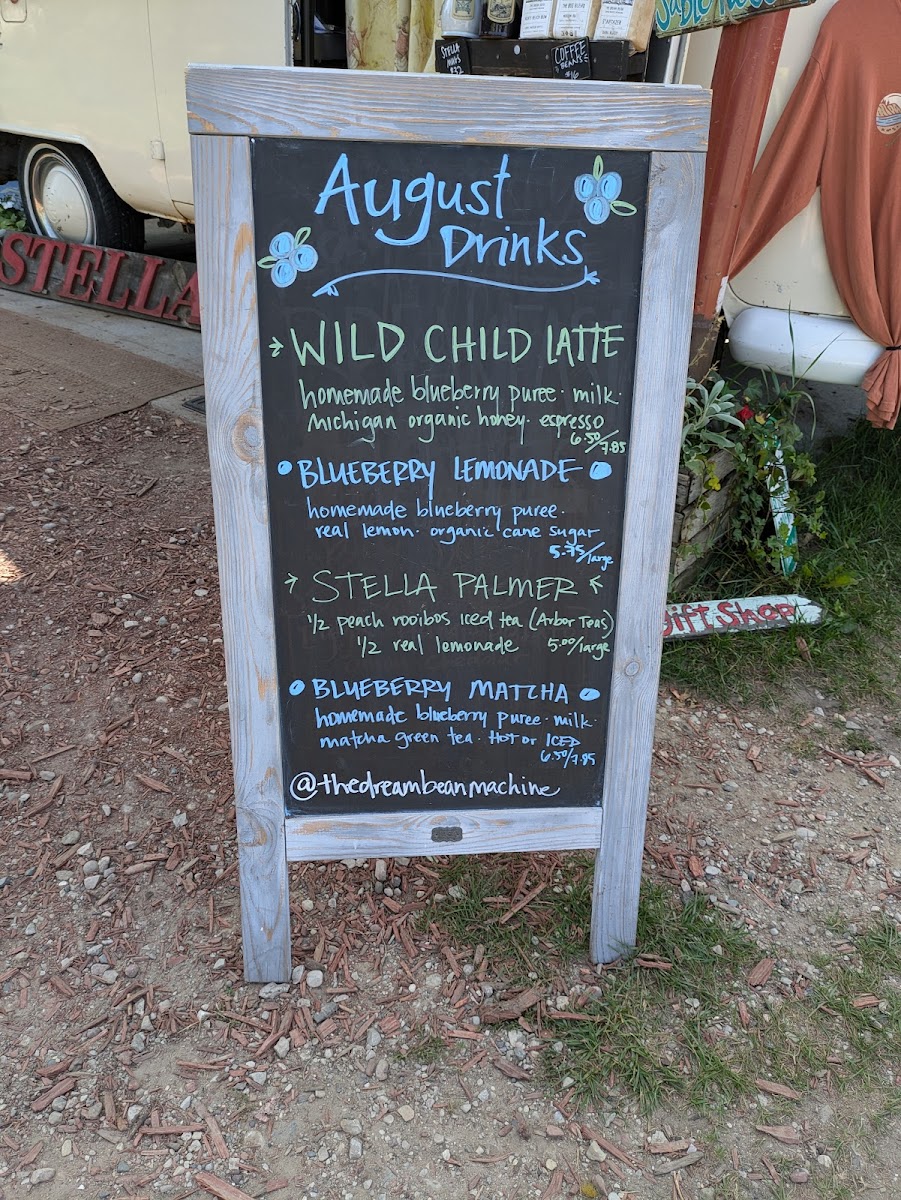 STELLA
MUGS
$32
COFFEE
BEANS
$16
STELLA
August
Drinks
→ WILD CHILD LATTE
homemade blueberry puree · milk ·
Michigan organic honey · espresso
6.50/7.85
BLUEBERRY LEMONADE
homemade blueberry puree ·
real lemon · organic cane sugar
5.75/large
→ STELLA PALMER ←
1/2 peach rooibos iced tea (Arbor Teas)
1/2 real lemonade 5.00/large
BLUEBERRY MATCHA
homemade blueberry puree · milk ·
matcha green tea · HOT or ICED
6.50/7.85
@thedreambeanmachine
Gift Shop